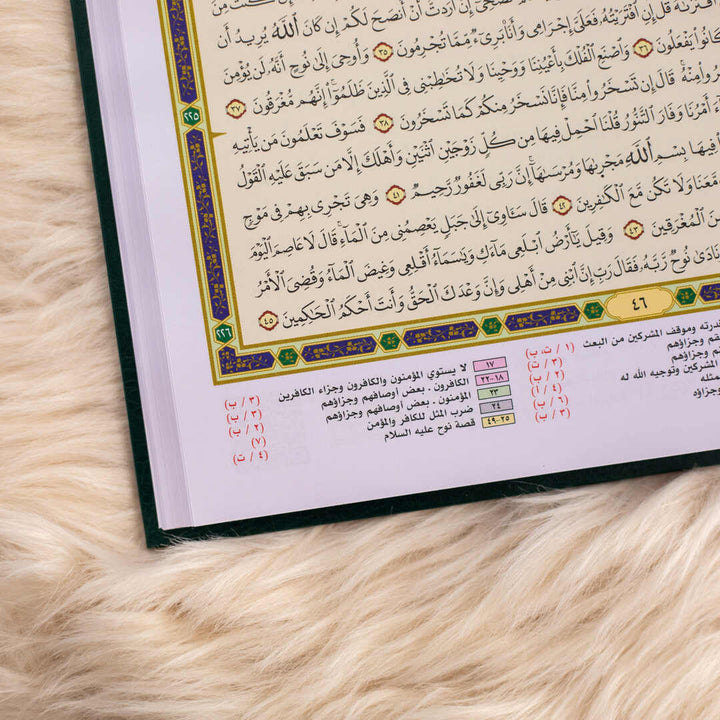 نُصْحِىٓ إِنْ أَرَدتُّ أَنْ أَنصَحَ لَكُمْ إِن كَانَ ٱللَّهُ يُرِيدُ أَن
قُلْ إِنِ ٱفْتَرَيْتُهُۥ فَعَلَىَّ إِجْرَامِى وَأَنَا۠ بَرِىٓءٌ مِّمَّا تُجْرِمُونَ ٣٥ وَأُوحِىَ إِلَىٰ نُوحٍ أَنَّهُۥ لَن يُؤْمِنَ
كَانُوا۟ يَفْعَلُونَ ٣٦ وَٱصْنَعِ ٱلْفُلْكَ بِأَعْيُنِنَا وَوَحْيِنَا وَلَا تُخَٰطِبْنِى فِى ٱلَّذِينَ ظَلَمُوٓا۟ إِنَّهُم مُّغْرَقُونَ ٣٧
مِنْهُ قَالَ إِن تَسْخَرُوا۟ مِنَّا فَإِنَّا نَسْخَرُ مِنكُمْ كَمَا تَسْخَرُونَ ٣٨ فَسَوْفَ تَعْلَمُونَ مَن يَأْتِيهِ
أَمْرُنَا وَفَارَ ٱلتَّنُّورُ قُلْنَا ٱحْمِلْ فِيهَا مِن كُلٍّ زَوْجَيْنِ ٱثْنَيْنِ وَأَهْلَكَ إِلَّا مَن سَبَقَ عَلَيْهِ ٱلْقَوْلُ
فِيهَا بِسْمِ ٱللَّهِ مَجْر۪ىٰهَا وَمُرْسَىٰهَآ إِنَّ رَبِّى لَغَفُورٌ رَّحِيمٌ ٤١ وَهِىَ تَجْرِى بِهِمْ فِى مَوْجٍ
مَّعَنَا وَلَا تَكُن مَّعَ ٱلْكَٰفِرِينَ ٤٢ قَالَ سَـَٔاوِىٓ إِلَىٰ جَبَلٍ يَعْصِمُنِى مِنَ ٱلْمَآءِ قَالَ لَا عَاصِمَ ٱلْيَوْمَ
مِنَ ٱلْمُغْرَقِينَ ٤٣ وَقِيلَ يَٰٓأَرْضُ ٱبْلَعِى مَآءَكِ وَيَٰسَمَآءُ أَقْلِعِى وَغِيضَ ٱلْمَآءُ وَقُضِىَ ٱلْأَمْرُ
نَادَىٰ نُوحٌ رَّبَّهُۥ فَقَالَ رَبِّ إِنَّ ٱبْنِى مِنْ أَهْلِى وَإِنَّ وَعْدَكَ ٱلْحَقُّ وَأَنتَ أَحْكَمُ ٱلْحَٰكِمِينَ ٤٥
٢٢٥
٢٢٦
٤٦
وموقف المشركين من البعث (١ / ت، ب)
وجزاؤهم (٣ / ت)
المشركين وتوجيه الله له (٢ / ب)
(٤ / أ)
(٣ / ب)
١٧ لا يستوي المؤمنون والكافرون وجزاء الكافرين (٣ / ب)
١٨-٢٢ الكافرون . بعض أوصافهم وجزاؤهم (٣ / ب)
٢٣ المؤمنون . بعض أوصافهم وجزاؤهم (٢ / ب)
٢٤ ضرب المثل للكافر والمؤمن (٧)
٢٥-٤٩ قصة نوح عليه السلام (٤ / ت)